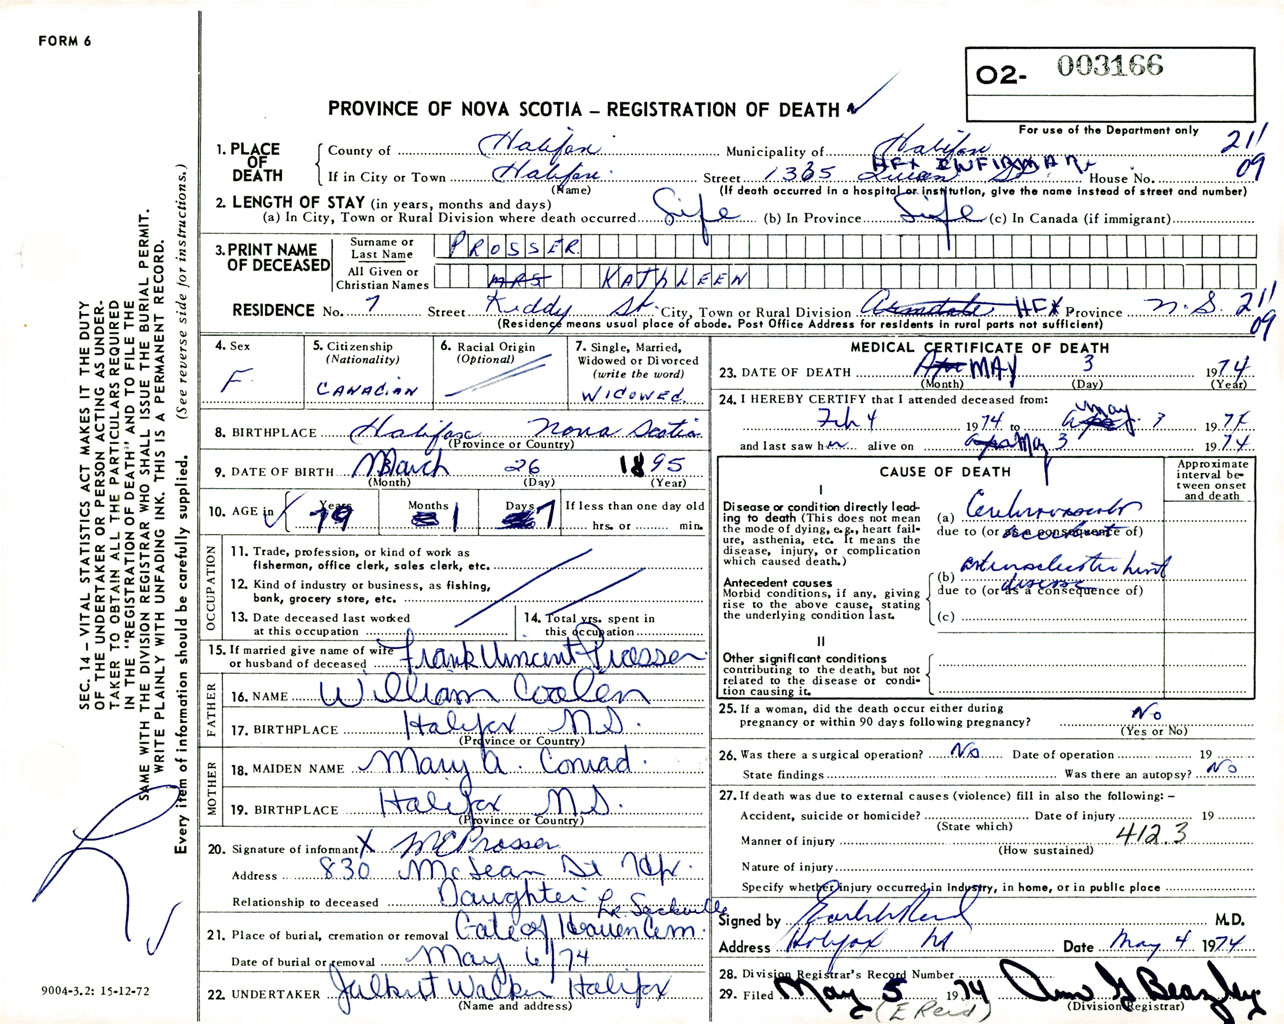 FORM 6
O2- 003166
PROVINCE OF NOVA SCOTIA – REGISTRATION OF DEATH
For use of the Department only
1. PLACE OF DEATH
County of Halifax Municipality of Halifax 211
HFX INFIRMARY 09
If in City or Town Halifax Street 1335 Queen St House No.
(Name) (If death occurred in a hospital or institution, give the name instead of street and number)
2. LENGTH OF STAY (in years, months and days)
(a) In City, Town or Rural Division where death occurred Life (b) In Province Life (c) In Canada (if immigrant)
3. PRINT NAME OF DECEASED
Surname or Last Name PROSSER
All Given or Christian Names MRS KATHLEEN
RESIDENCE No. 7 Street Kiddy St. City, Town or Rural Division Armdale HFX Province N.S. 211
(Residence means usual place of abode. Post Office Address for residents in rural parts not sufficient) 09
4. Sex
F.
5. Citizenship
(Nationality)
CANADIAN
6. Racial Origin
(Optional)
7. Single, Married, Widowed or Divorced
(write the word)
WIDOWED.
8. BIRTHPLACE Halifax Nova Scotia
(Province or Country)
9. DATE OF BIRTH March 26 1895
(Month) (Day) (Year)
10. AGE in Years 79 Months 1 Days 7
If less than one day old
hrs. or min.
OCCUPATION
11. Trade, profession, or kind of work as fisherman, office clerk, sales clerk, etc.
12. Kind of industry or business, as fishing, bank, grocery store, etc.
13. Date deceased last worked at this occupation
14. Total yrs. spent in this occupation
15. If married give name of wife or husband of deceased Frank Vincent Prosser
FATHER
16. NAME William Coolen
17. BIRTHPLACE Halifax N.S.
(Province or Country)
MOTHER
18. MAIDEN NAME Mary A. Conrad.
19. BIRTHPLACE Halifax N.S.
(Province or Country)
20. Signature of informant X M E Prosser
Address 830 McLean St Hfx.
Relationship to deceased Daughter
Lr. Sackville
21. Place of burial, cremation or removal Gate of Heaven Cem.
Date of burial or removal May 6/74
22. UNDERTAKER Walker Halifax
(Name and address)
MEDICAL CERTIFICATE OF DEATH
23. DATE OF DEATH MAY 3 1974
(Month) (Day) (Year)
24. I HEREBY CERTIFY that I attended deceased from:
Feb 4 1974 to May 3 1974
and last saw h alive on May 3 1974
CAUSE OF DEATH
Approximate interval between onset and death
I
Disease or condition directly leading to death (This does not mean the mode of dying, e.g., heart failure, asthenia, etc. It means the disease, injury, or complication which caused death.)
(a) Cerebrovascular
due to (or as a consequence of) accident
Antecedent causes
Morbid conditions, if any, giving rise to the above cause, stating the underlying condition last.
(b) arteriosclerotic heart
due to (or as a consequence of) disease
(c)
II
Other significant conditions
contributing to the death, but not related to the disease or condition causing it.
25. If a woman, did the death occur either during pregnancy or within 90 days following pregnancy? No
(Yes or No)
26. Was there a surgical operation? No Date of operation 19
State findings Was there an autopsy? No
27. If death was due to external causes (violence) fill in also the following: –
Accident, suicide or homicide? Date of injury 19
(State which)
Manner of injury 412.3
(How sustained)
Nature of injury
Specify whether injury occurred in industry, in home, or in public place
Signed by M.D.
Address Halifax NS Date May 4 1974
28. Division Registrar's Record Number
29. Filed May 5 1974 Ann G Beazley
(E Reid) (Division Registrar)
SEC. 14 – VITAL STATISTICS ACT MAKES IT THE DUTY
OF THE UNDERTAKER OR PERSON ACTING AS UNDER-
TAKER TO OBTAIN ALL THE PARTICULARS REQUIRED
IN THE "REGISTRATION OF DEATH" AND TO FILE THE
SAME WITH THE DIVISION REGISTRAR WHO SHALL ISSUE THE BURIAL PERMIT.
WRITE PLAINLY WITH UNFADING INK. THIS IS A PERMANENT RECORD.
Every item of information should be carefully supplied. (See reverse side for instructions.)
9004-3.2: 15-12-72